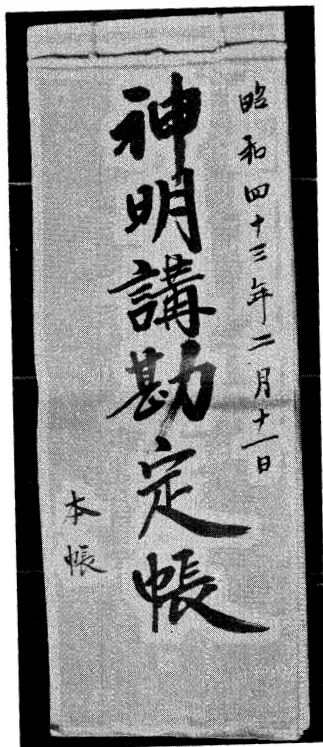 昭和四十三年二月十一日
神明講勘定帳
本帳